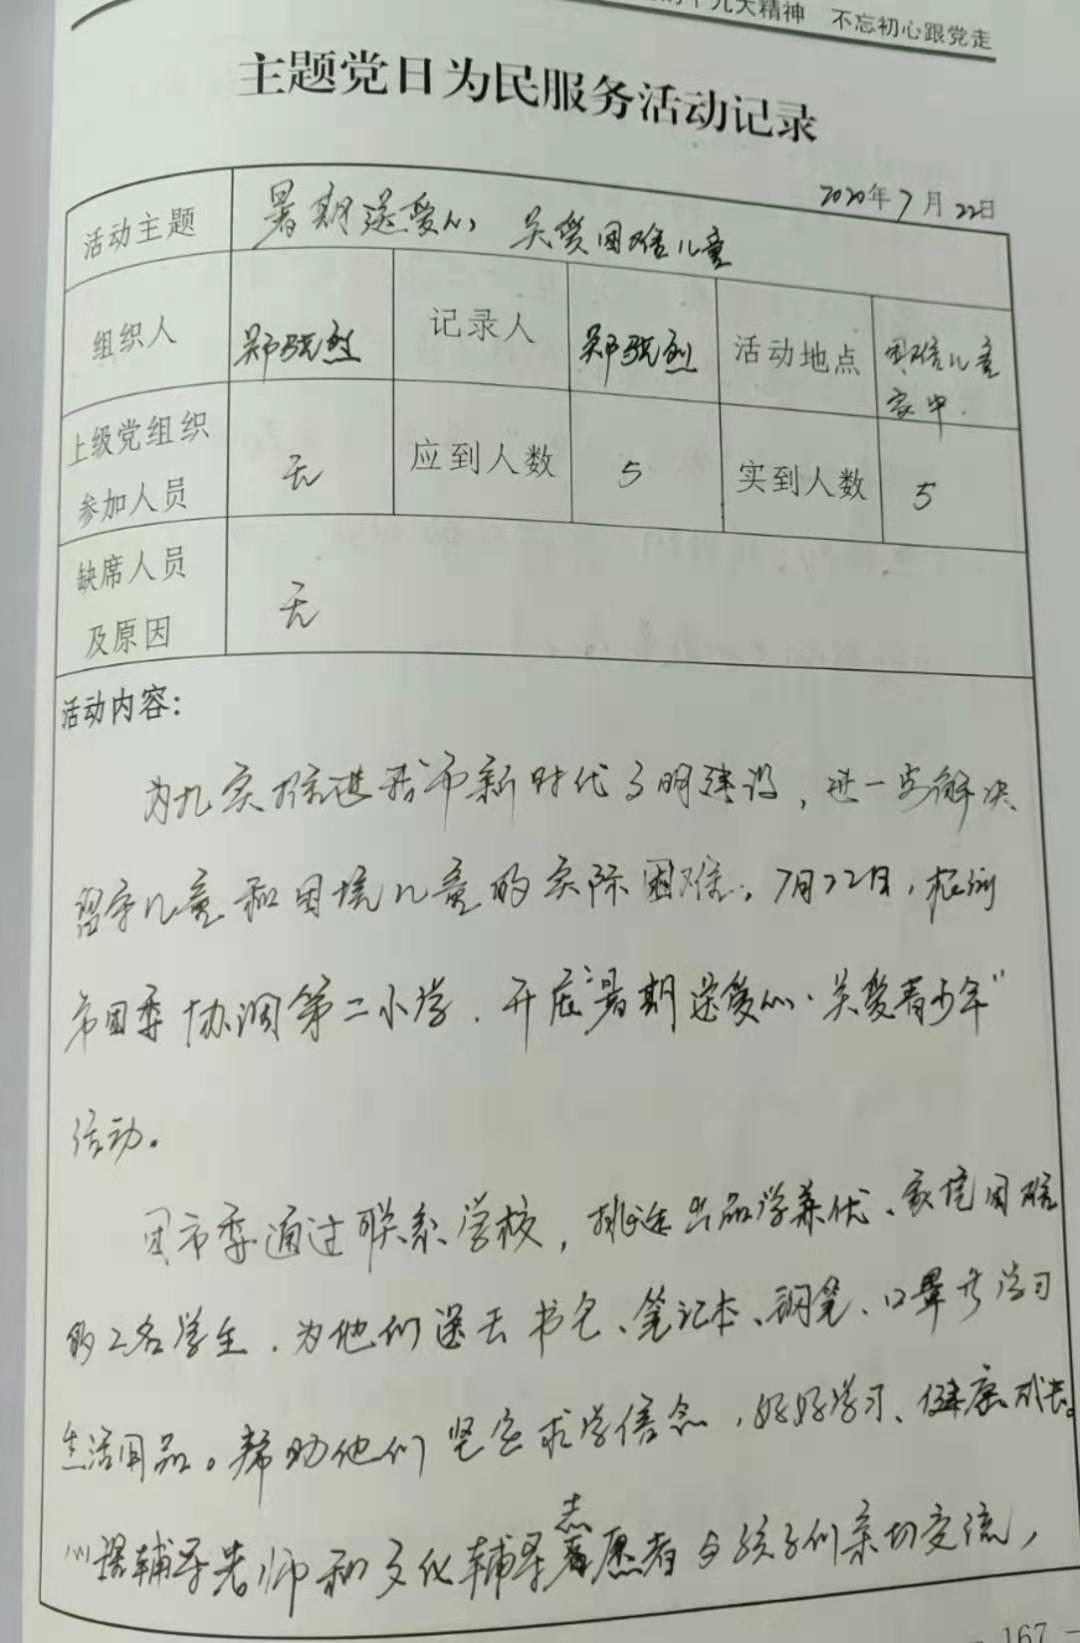 十九大精神 不忘初心跟党走
主题党日为民服务活动记录
2020年7月22日
活动主题 暑期送爱心 关爱困难儿童
组织人 郑 记录人 郑 活动地点 困难儿童
家中.
上级党组织
参加人员 无 应到人数 5 实到人数 5
缺席人员
及原因 无
活动内容：
为扎实推进我市新时代文明建设，进一步解决
留守儿童和困境儿童的实际困难。7月22日，
市团委协调第二小学.开展"暑期送爱心·关爱青少年"
活动。
团市委通过联系学校，挑选出品学兼优、家境困难
的2名学生.为他们送去书包、笔记本、钢笔、口罩等学习
生活用品。帮助他们坚定求学信念，好好学习、健康成长。
课辅导老师和文化辅导志愿者与孩子们亲切交流，
167